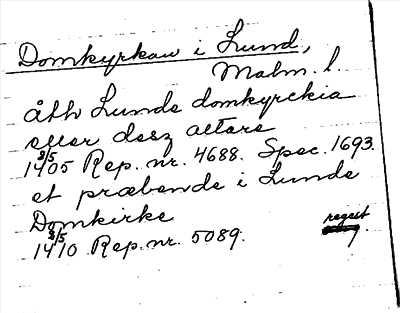 Domkyrkan i Lund,
Malm. l.
åth Lunde domkyrckia
eller desz altare
8/5 1405 Rep. nr. 4688. Spec. 1693.
et præbende i Lunde
Domkirke regest
8/5 1410 Rep. nr. 5089.